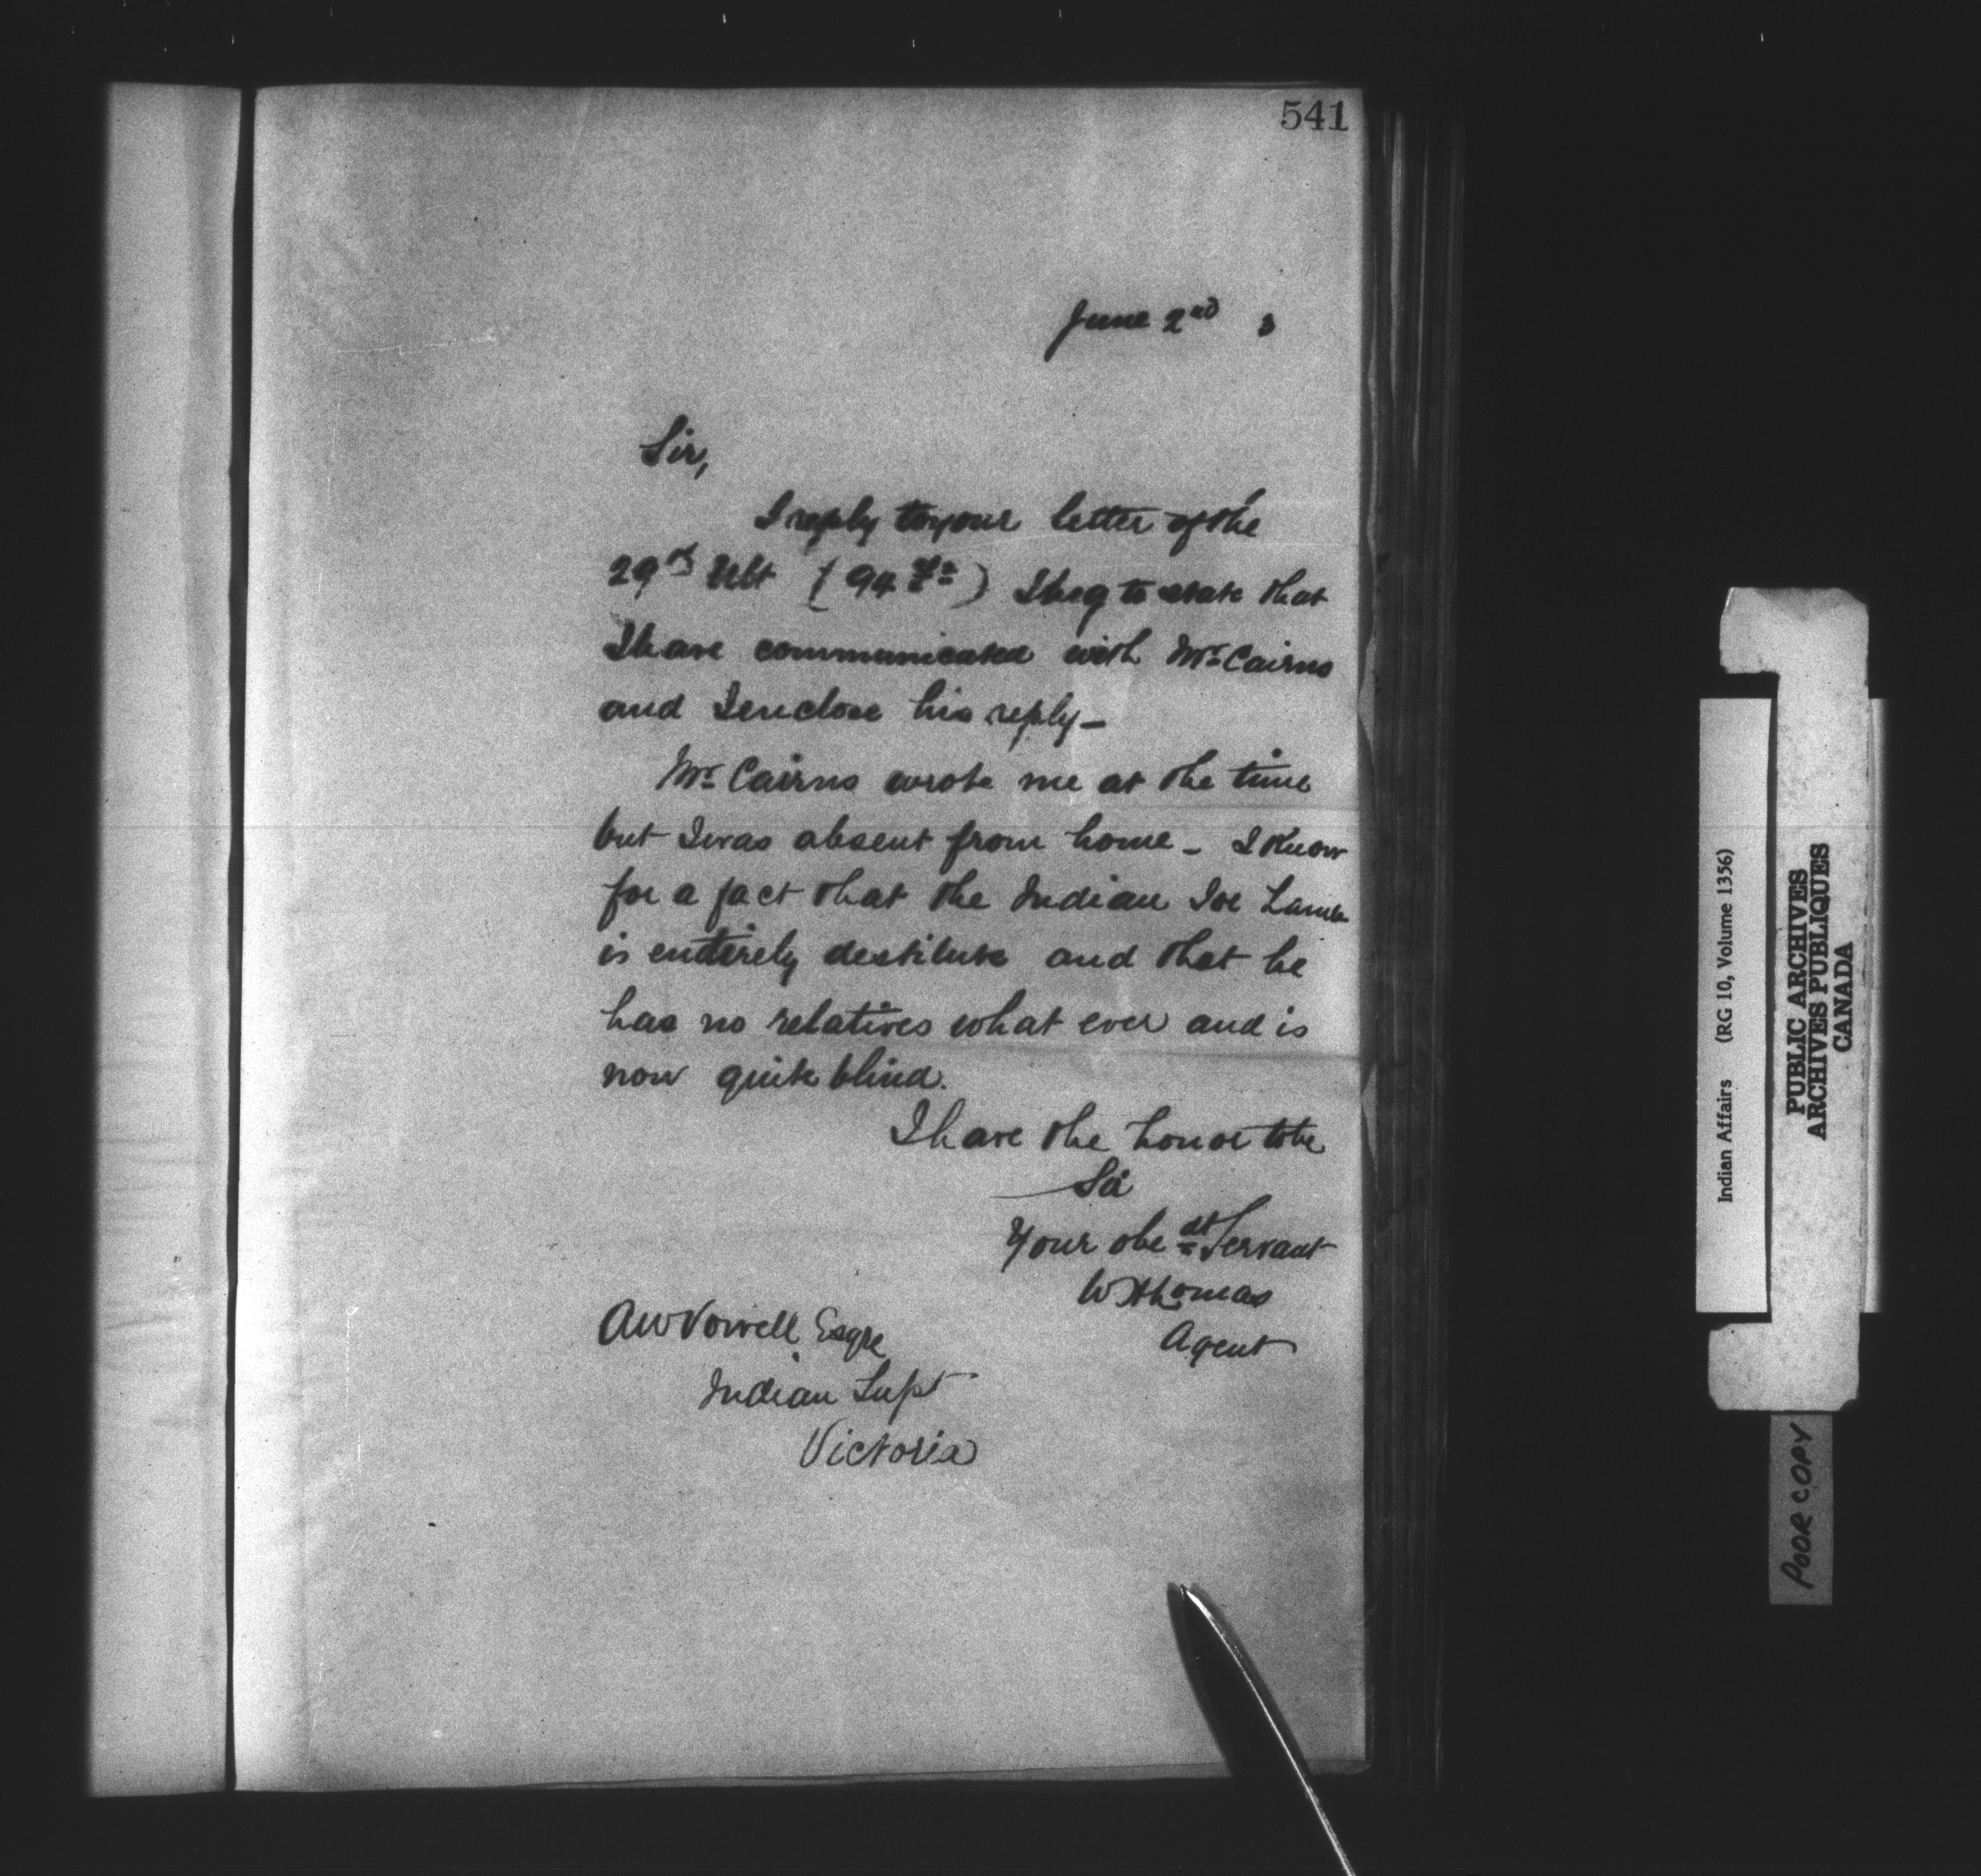 541
June 2nd 3
Sir,
I reply to your letter of the
29th Ult (94 ) I beg to state that
I have communicated with Mr Cairns
and I enclose his reply —
Mr Cairns wrote me at the time
but I was absent from home — I know
for a fact that the Indian Joe
is entirely destitute and that he
has no relatives what ever and is
now quite blind.
I have the honor to be
Sir
Your obedt Servant
W H Lomas
Agent
A W Vowell Esqre
Indian Supt
Victoria
Indian Affairs (RG 10, Volume 1356)
PUBLIC ARCHIVES
ARCHIVES PUBLIQUES
CANADA
POOR COPY